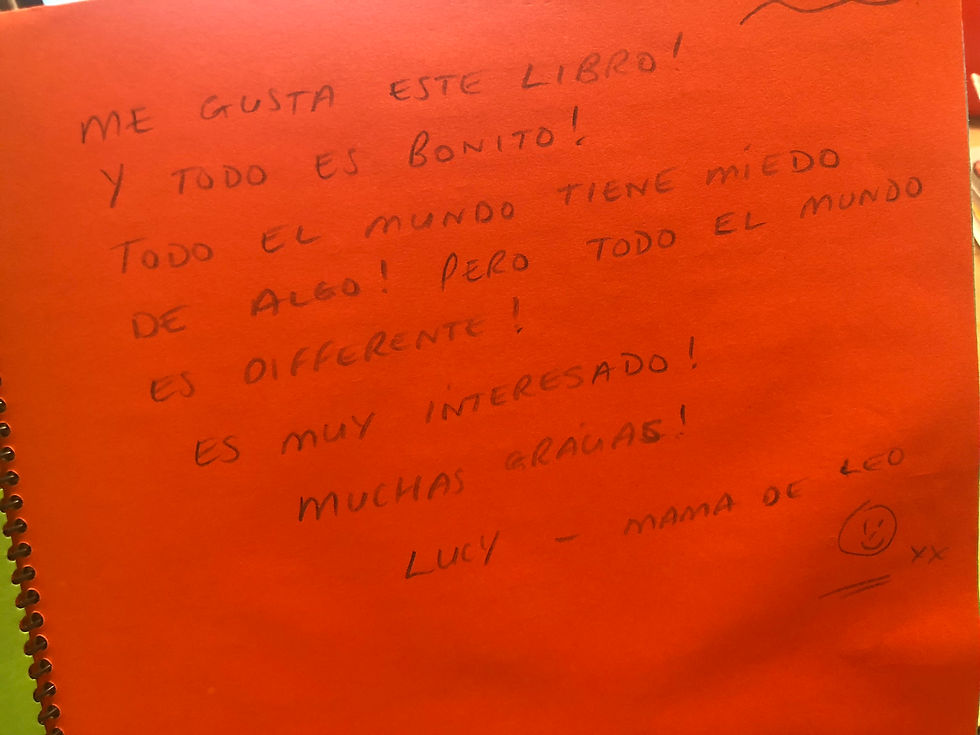 ME GUSTA ESTE LIBRO!
Y TODO ES BONITO!
TODO EL MUNDO TIENE MIEDO
DE ALGO! PERO TODO EL MUNDO
ES DIFFERENTE!
ES MUY INTERESADO!
MUCHAS GRACIAS!
LUCY - MAMA DE LEO
xx